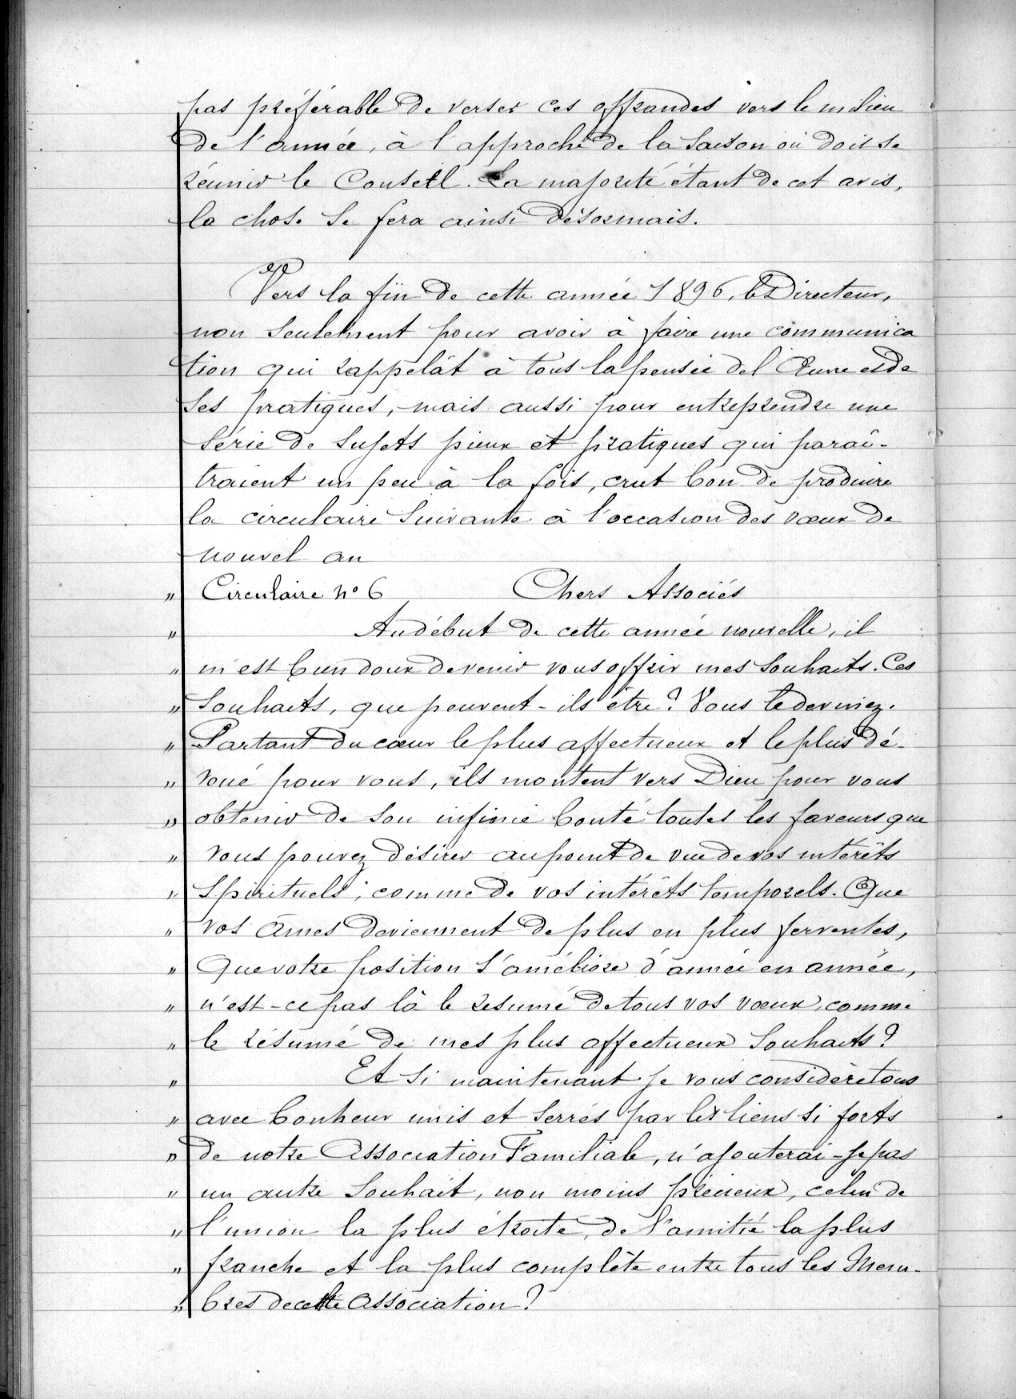 pas préférable de verser ces offrandes vers le milieu
de l'année, à l'approche de la saison où doit se
réunir le Conseil. La majorité étant de cet avis,
la chose se fera ainsi désormais.
Vers la fin de cette année 1896, le Directeur,
non seulement pour avoir à faire une communica
tion qui rappelât à tous la pensée de l'Œuvre et de
ses pratiques, mais aussi pour entreprendre une
série de sujets pieux et pratiques qui paraî-
traient un peu à la fois, crut bon de produire
la circulaire suivante à l'occasion des vœux de
nouvel an
" Circulaire n° 6 Chers Associés
" Au début de cette année nouvelle, il
" m'est bien doux de venir vous offrir mes souhaits. Ces
" souhaits, que peuvent-ils être? Vous le devinez.
" Partant du cœur le plus affectueux et le plus dé-
" voué pour vous, ils montent vers Dieu pour vous
" obtenir de son infinie bonté toutes les faveurs que
" vous pouvez désirer au point de vue de vos intérêts
" spirituels, comme de vos intérêts temporels. Que
" vos âmes deviennent de plus en plus ferventes,
" que votre position s'améliore d'année en année,
" n'est-ce pas là le resumé de tous vos vœux, comme
" le résumé de mes plus affectueux souhaits?
" Et si maintenant je vous considère tous
" avec bonheur unis et serrés par les liens si forts
" de notre Association Familiale, n'ajouterai-je pas
" un autre souhait, non moins précieux, celui de
" l'union la plus étroite, de l'amitié la plus
" franche et la plus complète entre tous les Mem-
" bres de cette Association?